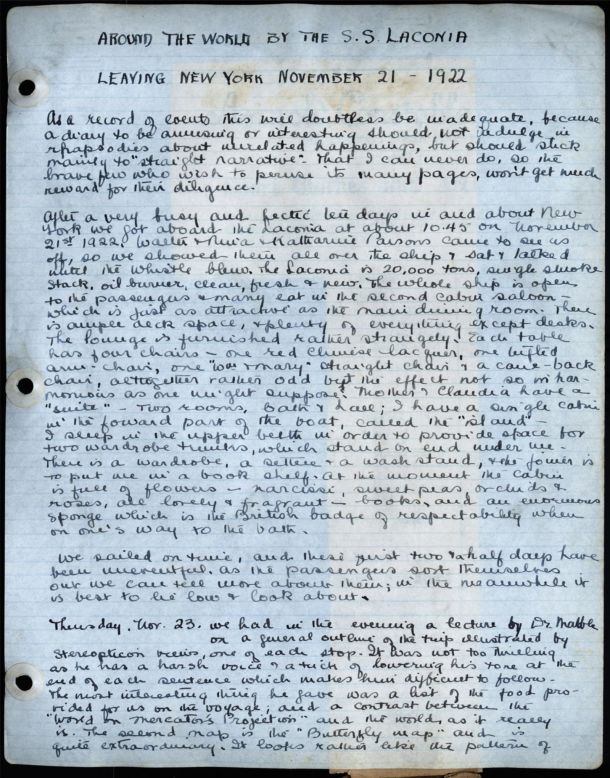 AROUND THE WORLD BY THE S.S. LACONIA
LEAVING NEW YORK NOVEMBER 21 - 1922
As a record of events this will doubtless be inadequate, because
a diary to be amusing or interesting should not indulge in
rhapsodies about unrelated happenings, but should stick
mainly to "straight narrative". That I can never do, so the
brave few who wish to peruse its many pages, won't get much
reward for their diligence.
After a very busy and hectic ten days in and about New
York we got aboard the Laconia at about 10.45 on November
21st 1922. Walter & Anna & Katharine Parsons came to see us
off, so we showed them all over the ship & sat & talked
until the whistle blew. The Laconia is 20,000 tons, single smoke
stack, oil burner, clean, fresh & new. The whole ship is open
to the passengers & many eat in the second cabin saloon -
which is just as attractive as the main dining room. There
is ample deck space, & plenty of everything except desks.
The lounge is furnished rather strangely. Each table
has four chairs - one red Chinese-lacquer, one tufted
arm-chair, one "Wm & Mary" straight chair & a cane-back
chair, altogether rather odd but the effect not so inhar-
monious as one might suppose. Mother & Claudia have a
"suite" - two rooms, bath & hall; I have a single cabin
in the foward part of the boat, called the "Island" -
I sleep in the upper berth in order to provide space for
two wardrobe trunks, which stand on end under me.
There is a wardrobe, a settee & a wash stand, & the joiner is
to put me in a book shelf. At the moment the cabin
is full of flowers - narcissi, sweet peas orchids &
roses, all lovely & fragrant - books, and an enormous
sponge which is the British badge of respectability when
on one's way to the bath.
We sailed on time, and these first two & a half days have
been uneventful. As the passengers sort themselves
out we can tell more about them; in the meanwhile it
is best to lie low & look about.
Thursday, Nov. 23. We had in the evening a lecture by Dr.
on a general outline of the trip illustrated by
stereopticon views, one of each stop. It was not too thrilling
as he has a harsh voice & a trick of lowering his tone at the
end of each sentence which makes him difficult to follow.
The most interesting thing he gave was a list of the food pro-
vided for us on the voyage; and a contrast between the
"World on Mercator's Projection" and the world as it really
is. The second map is the "Butterfly map" and is
quite extraordinary. It looks rather like the pattern of